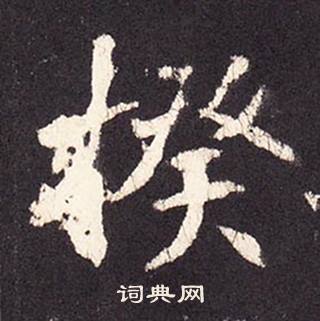 揆
词典网